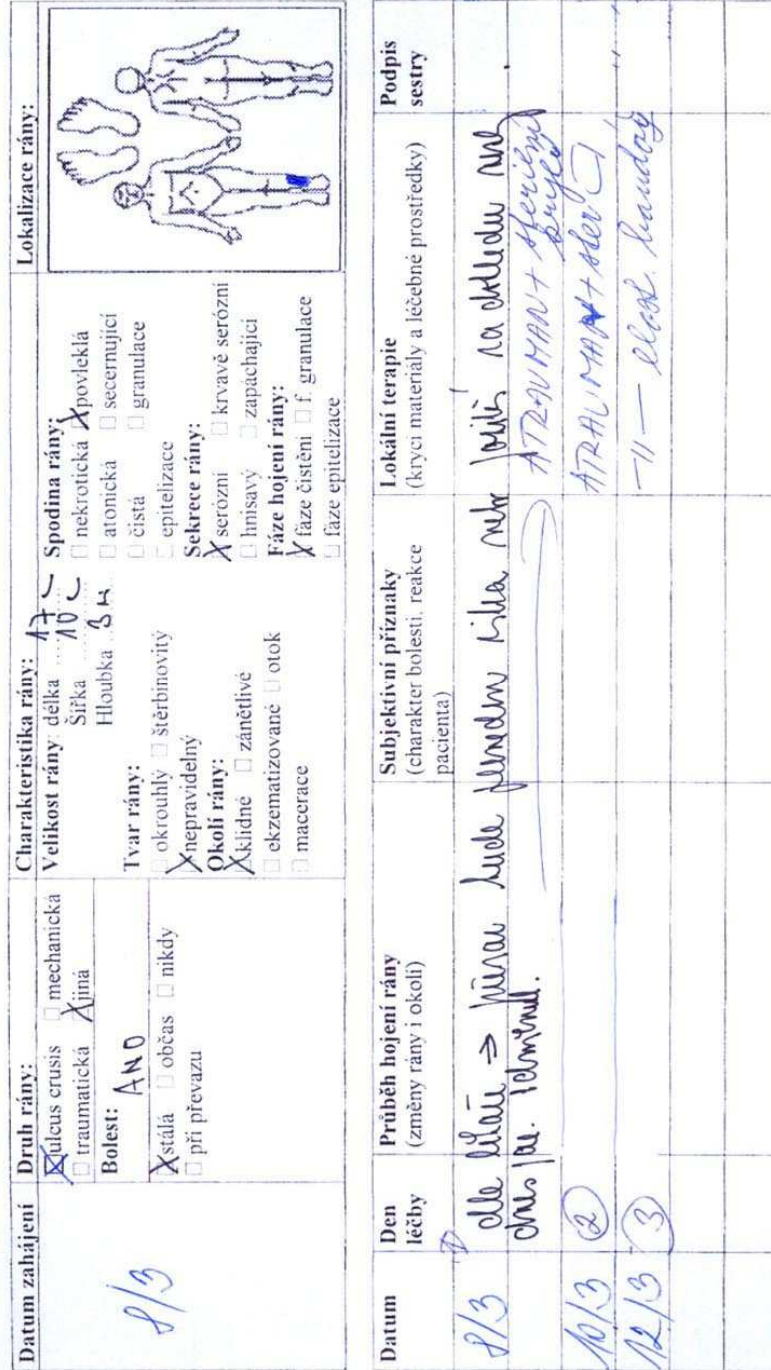 Datum zahájení
8/3
Druh rány:
☒ ulcus crusis ☐ mechanická
☐ traumatická ☒ jiná
Bolest: ANO
☒ stálá ☐ občas ☐ nikdy
☐ při převazu
Charakteristika rány:
Velikost rány: délka 17 c
Šířka 10 c
Hloubka 3 м
Tvar rány:
☐ okrouhlý ☐ štěrbinovitý
☒ nepravidelný
Okolí rány:
☒ klidné ☐ zánětlivé
☐ ekzematizované ☐ otok
☐ macerace
Spodina rány:
☐ nekrotická ☒ povleklá
☐ atonická ☐ secernující
☐ čistá ☐ granulace
☐ epitelizace
Sekrece rány:
☒ serózní ☐ krvavě serózní
☐ hnisavý ☐ zapáchající
Fáze hojení rány:
☒ fáze čistění ☐ f. granulace
☐ fáze epitelizace
Lokalizace rány:
Datum
Den léčby
Průběh hojení rány
(změny rány i okolí)
Subjektivní příznaky
(charakter bolesti, reakce
pacienta)
Lokální terapie
(krycí materiály a léčebné prostředky)
Podpis
sestry
8/3 1 dle lékaře ⇒ převaz bude proveden na
dnes ATRAUMAN + sterilní
10/3 2 ATRAUMAN + ster
12/3 3 -"- elast. bandáž "